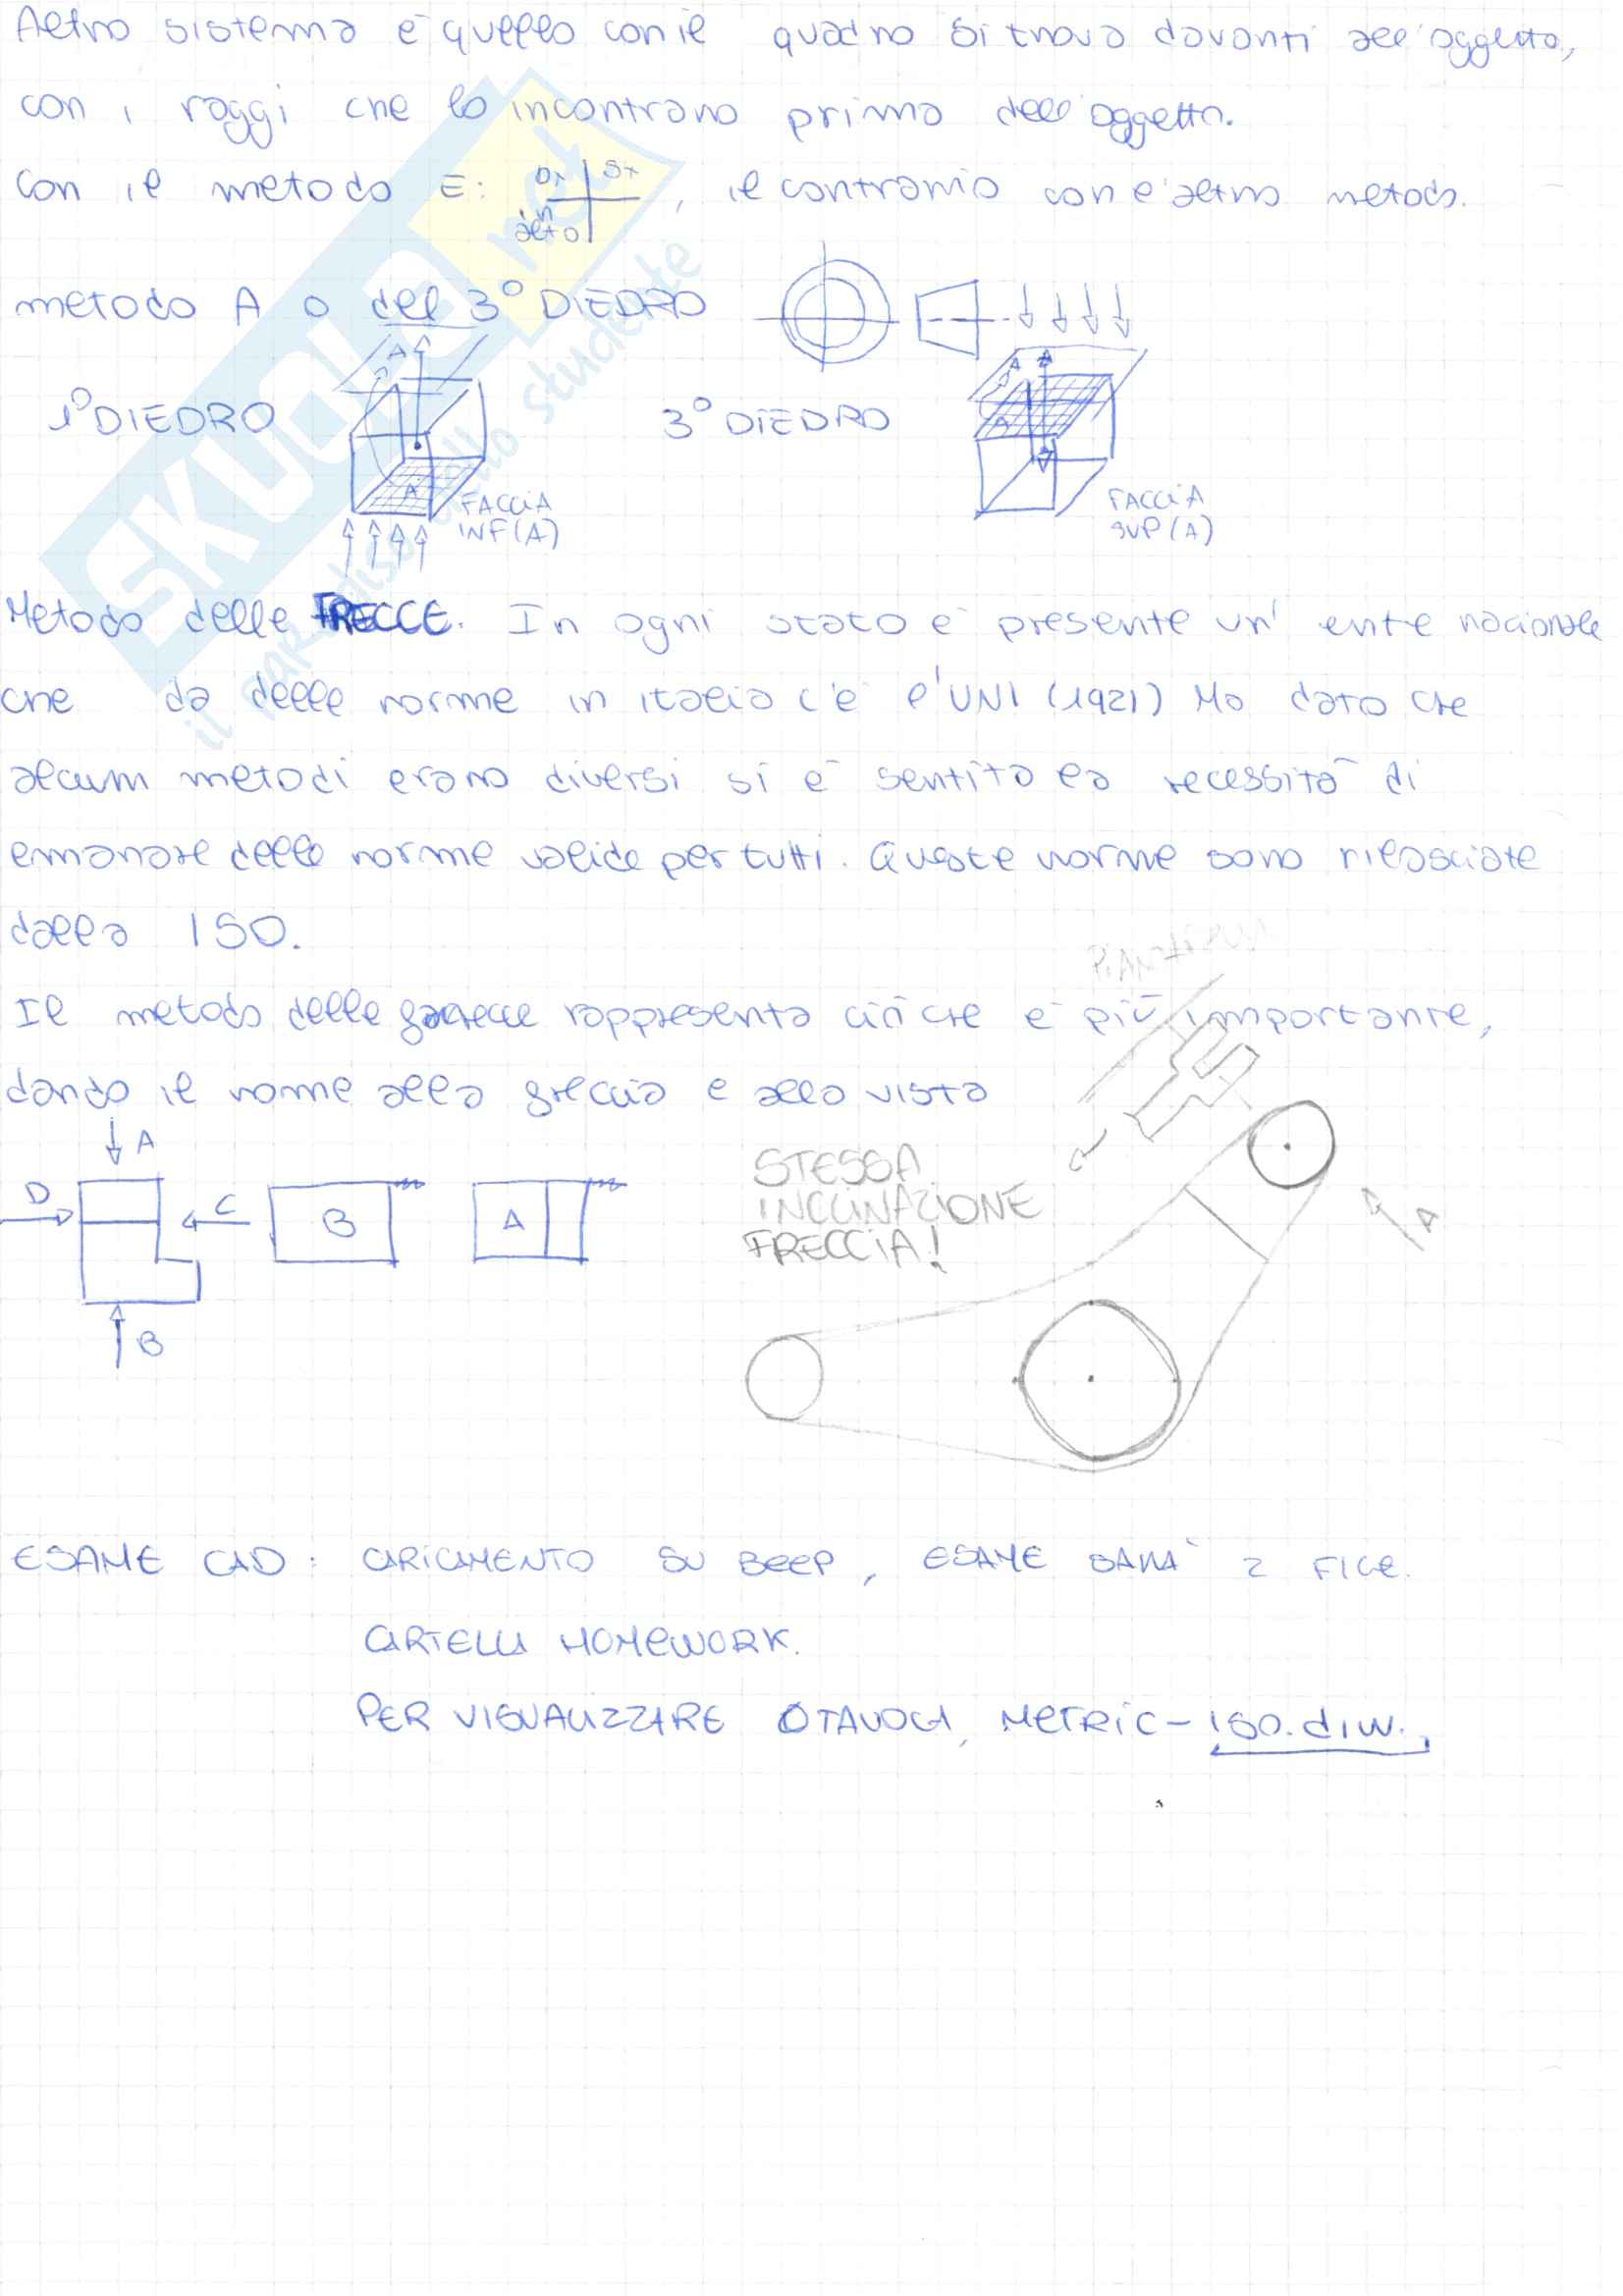 Altro sistema è quello con il quadro si trova davanti all'oggetto,
con i raggi che lo incontrano prima dell'oggetto.
Con il metodo E: Dx Sx in alto, il contrario con l'altro metodo.
metodo A o del 3° DIEDRO
1° DIEDRO
A
A
FACCIA
INF(A)
3° DIEDRO
A
A
FACCIA
SUP(A)
Metodo delle FRECCE. In ogni stato è presente un' ente nazionale
che da delle norme in italia c'è l'UNI (1921) Ma dato che
alcuni metodi erano diversi si è sentita la necessità di
emanare delle norme valide per tutti. Queste norme sono rilasciate
dalla ISO.
Il metodo delle frecce rappresenta ciò che è più importante,
dando il nome alla freccia e alla vista
A
D
C
B
A
B
STESSA
INCLINAZIONE
FRECCIA!
A
ESAME CAD: CARICAMENTO SU BEEP, ESAME SARA' 2 FILE.
CARTELLA HOMEWORK.
PER VISUALIZZARE 0 TAVOLA, METRIC-ISO.diw.
SKUOLA.net
il paradiso dello studente